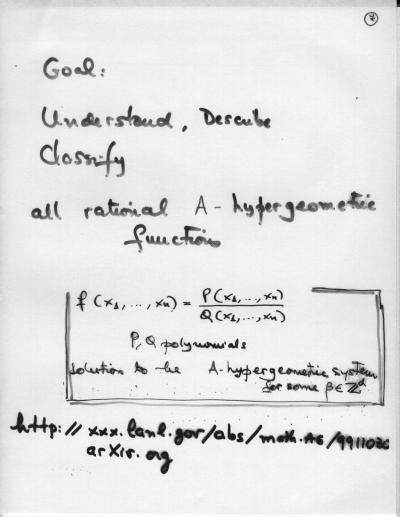 Goal:
Understand, Describe
Classify
all rational A-hypergeometric
functions
f(x₁,...,xₙ) = P(x₁,...,xₙ) / Q(x₁,...,xₙ)
P, Q polynomials
solution to the A-hypergeometric system
for some β ∈ ℤᵈ
http://xxx.lanl.gov/abs/math.AG/9911030
arXiv.org